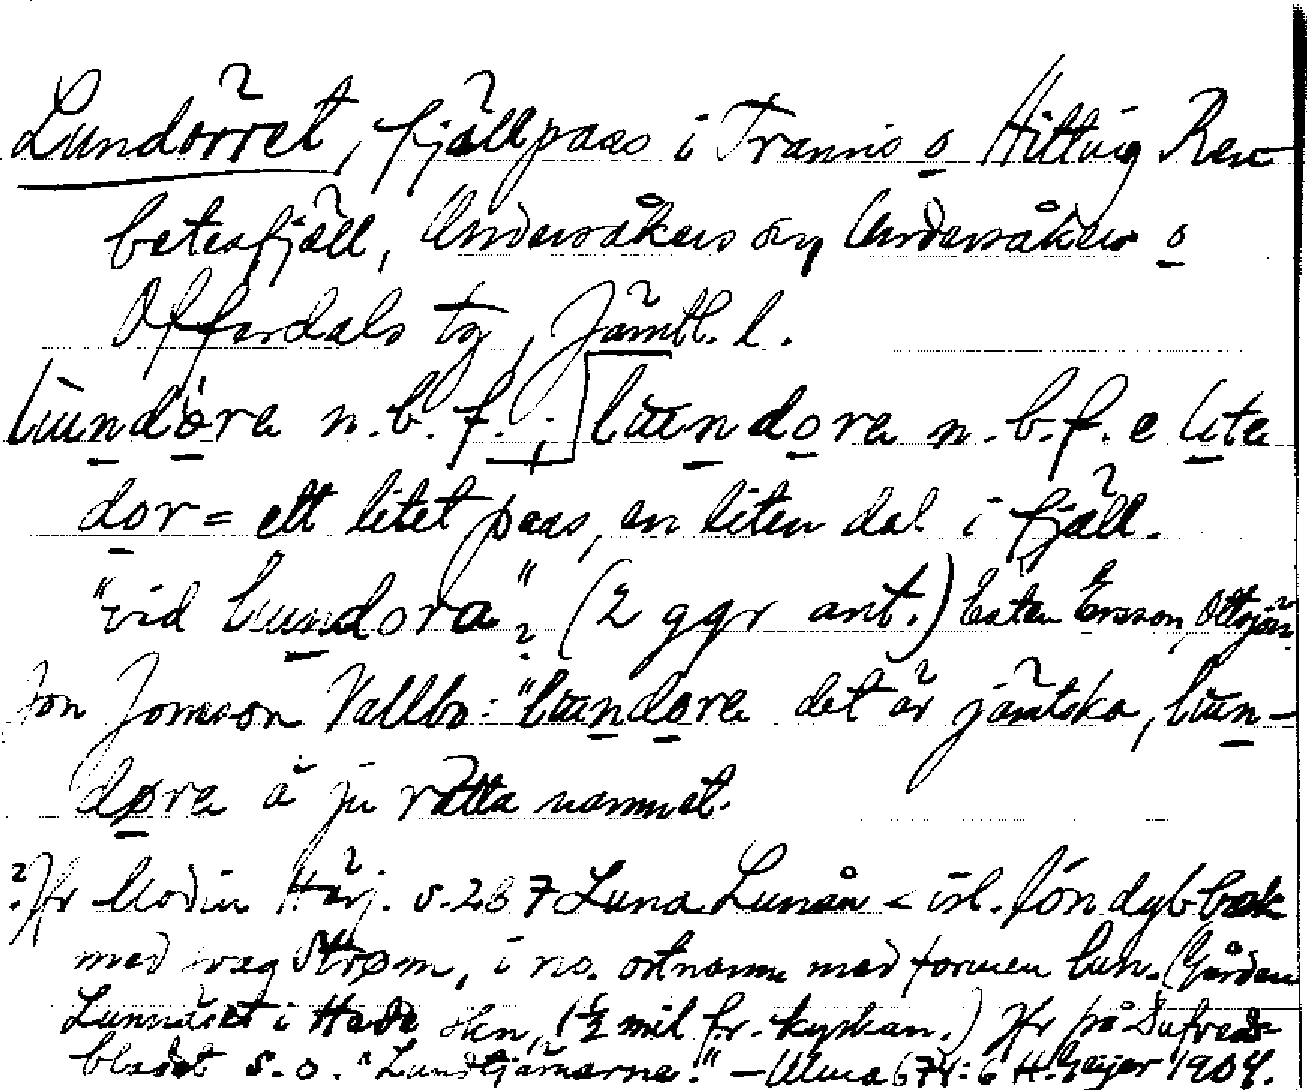 Lundörret, fjällpass i Tranris o Hittvig Ren
betesfjäll, Undersåkers sn, Undersåkers o
Offerdals tg, Jämtl. l.
lundöra n.b.f.; lundora n.b.f. e lite
dor = ett litet pass, en liten dal i fjäll.
"vid lundora"? (2 ggr ant.) Ersson, Ottsjön
Jon Jonsson Vallbo: "lundora det är jämtska, lun-
døra ä ju rätta namnet.
? Jfr Modin Härj. s. 287 Luna Lunån < isl. lón dyb bæk
med svag Strøm, i no. ortnamn med formen lun. (Gården
Lunnäset i Hede skn, (½ mil fr. kyrkan.) Jfr på
bladet s. o. "Lundtjärnarna." – Ulma 674:6 H. Geijer 1904.